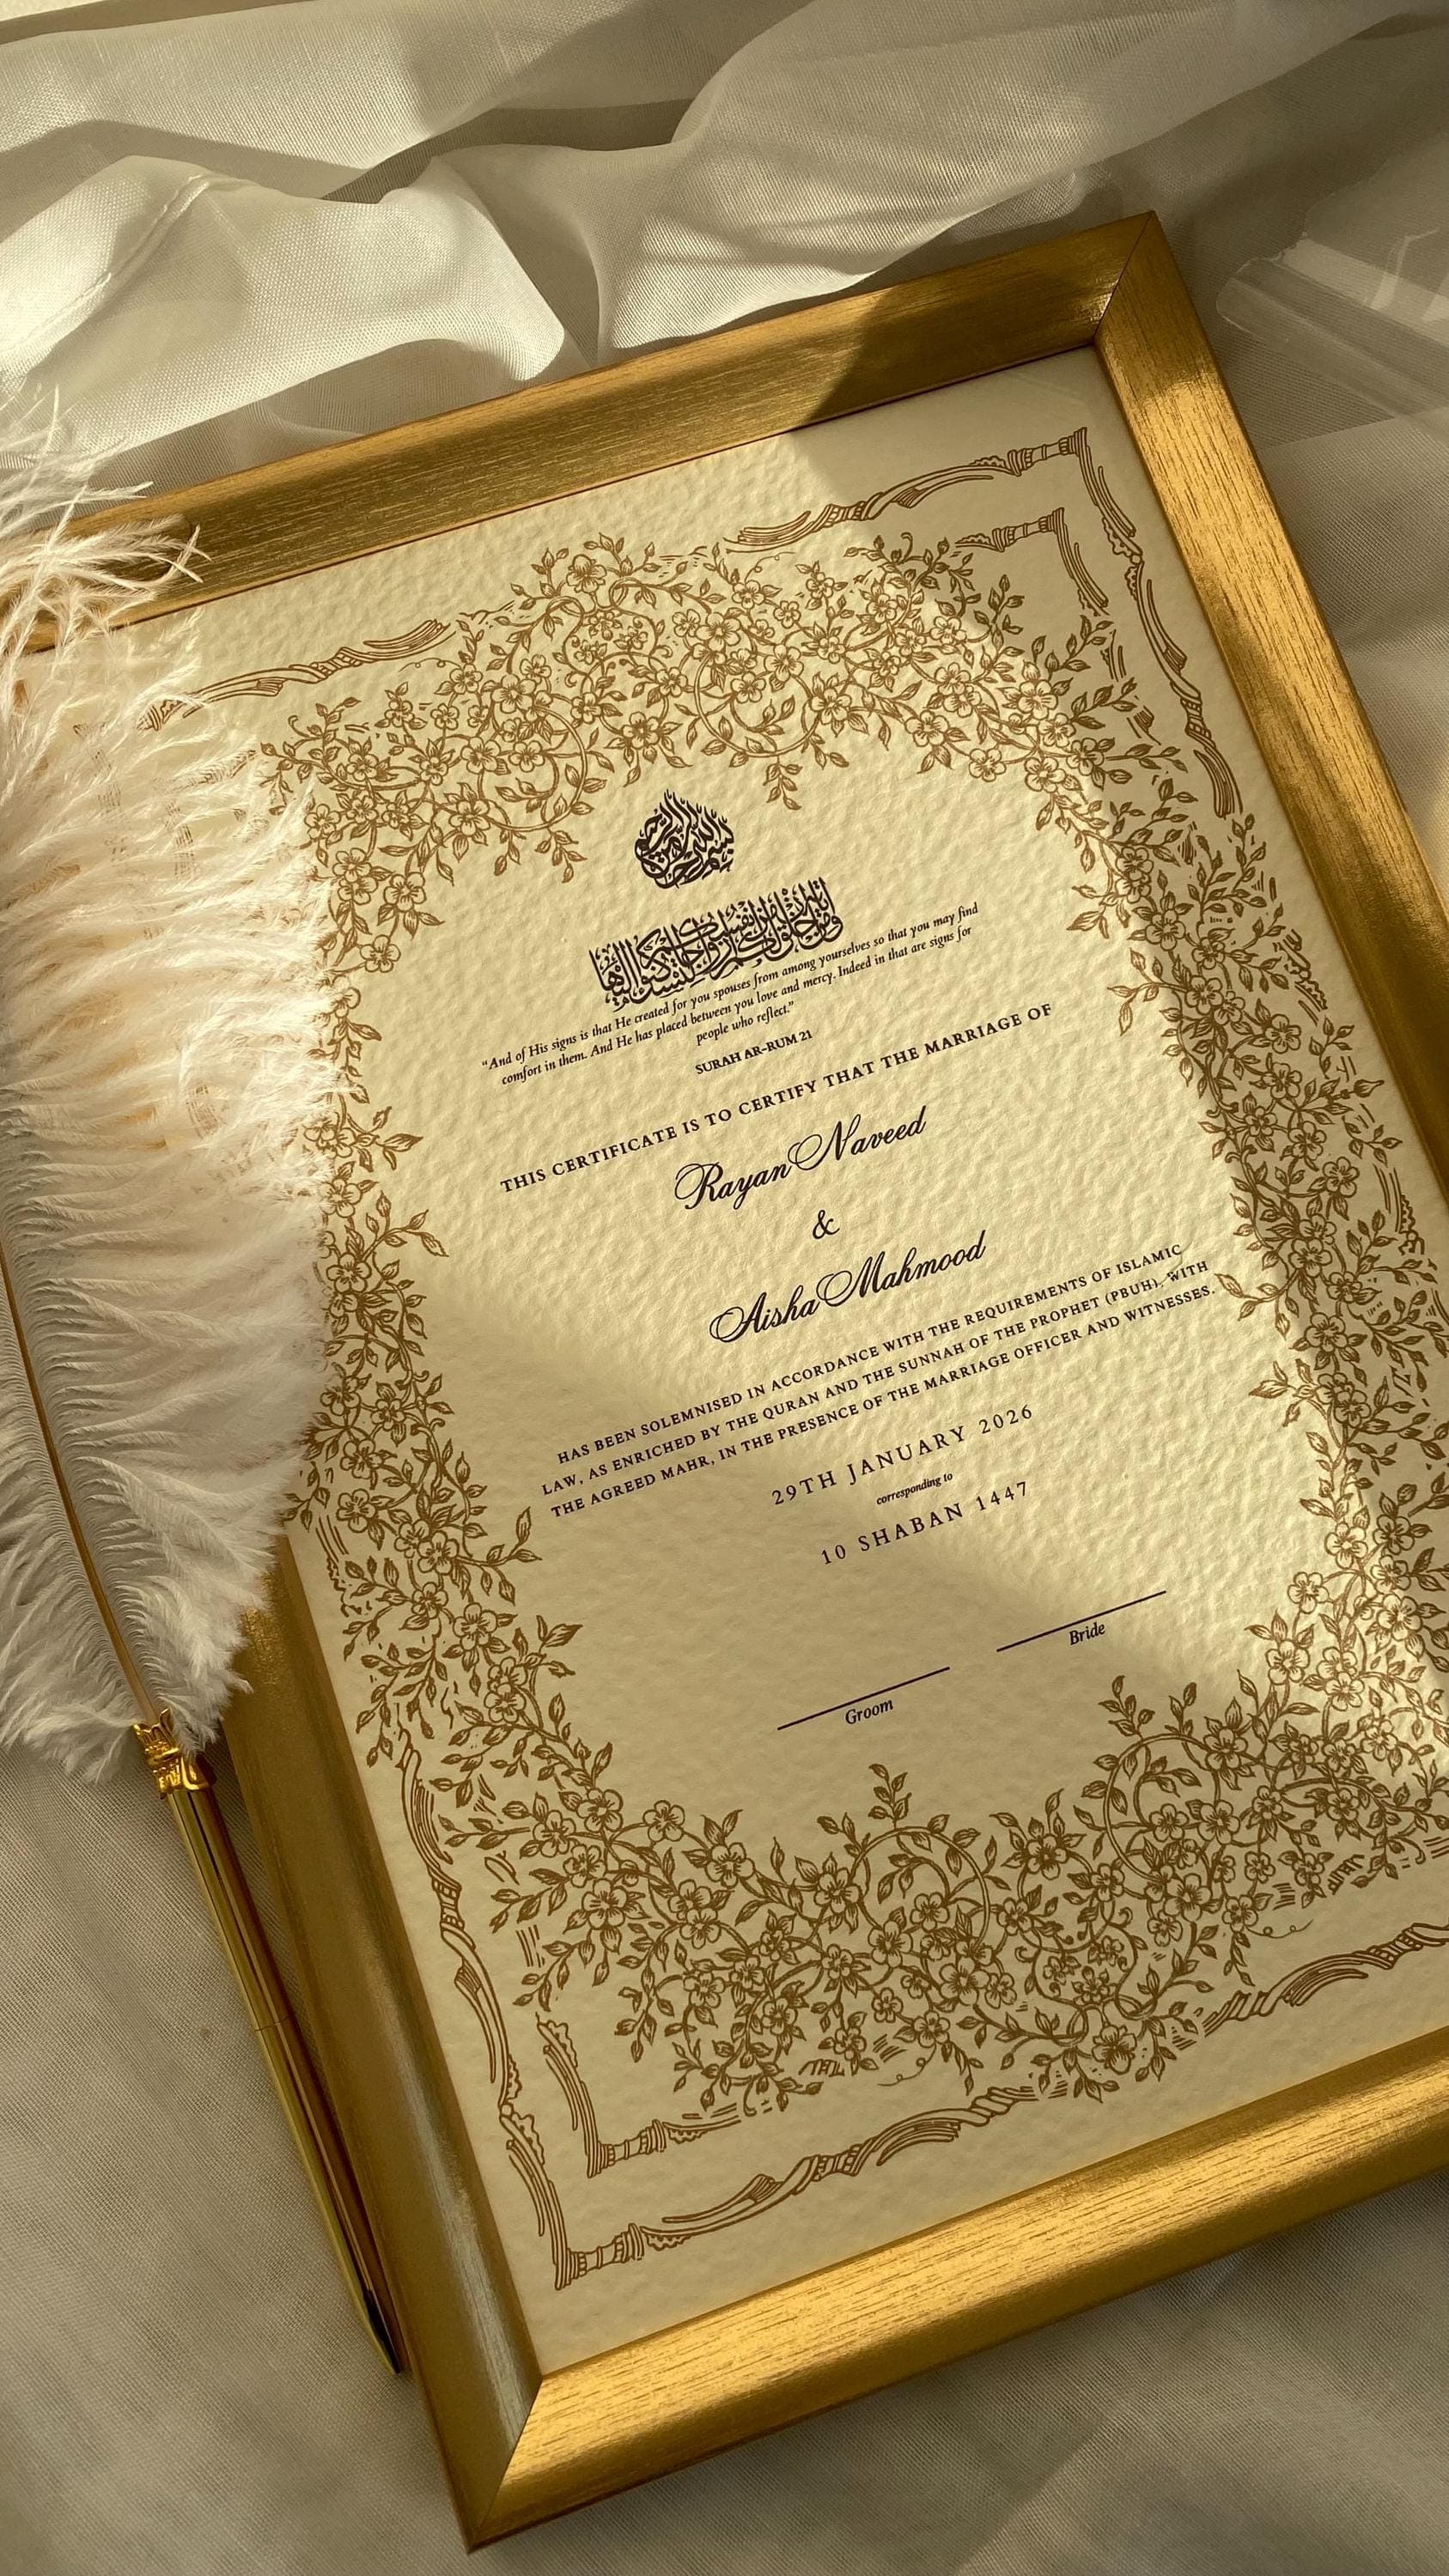 بسم الله الرحمن الرحيم
ومن آياته أن خلق لكم من أنفسكم أزواجا لتسكنوا إليها
“And of His signs is that He created for you spouses from among yourselves so that you may find
comfort in them. And He has placed between you love and mercy. Indeed in that are signs for
people who reflect.”
SURAH AR-RUM 21
THIS CERTIFICATE IS TO CERTIFY THAT THE MARRIAGE OF
Rayan Naveed
&
Aisha Mahmood
HAS BEEN SOLEMNISED IN ACCORDANCE WITH THE REQUIREMENTS OF ISLAMIC
LAW, AS ENRICHED BY THE QURAN AND THE SUNNAH OF THE PROPHET (PBUH), WITH
THE AGREED MAHR, IN THE PRESENCE OF THE MARRIAGE OFFICER AND WITNESSES.
29TH JANUARY 2026
corresponding to
10 SHABAN 1447
Groom
Bride